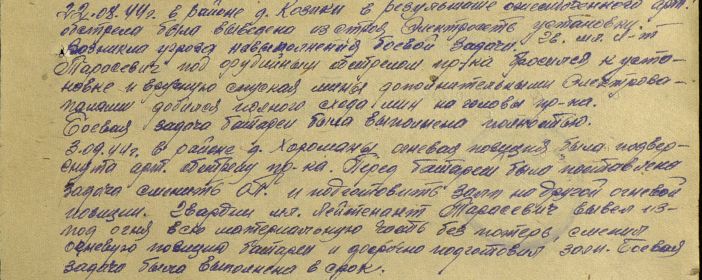 22.08.44г. в районе д. Козики в результате ожесточенного арт.
обстрела была выведено из строя Электрочасть установки.
Возникла угроза невыполнения боевой задачи. Гв. мл. л-т
Тарасевич под орудийным обстрелом пр-ка бросился к уста-
новке и вручную спуская мины дополнительными Электрова-
танами добился полного схода мин на головы пр-ка.
Боевая задача батареи была выполнена полностью.
3.09.44г. в районе д. Хороманы огневая позиция была подвер-
гнута арт. обстрелу пр-ка. Перед батареей была поставлена
задача сменить О.П. и подготовить залп на другой огневой
позиции. Гвардии мл. Лейтенант Тарасевич вывел из-
под огня всю материальную часть без потерь, сменил
огневую позицию батареи и досрочно подготовил залп. Боевая
задача была выполнена в срок.